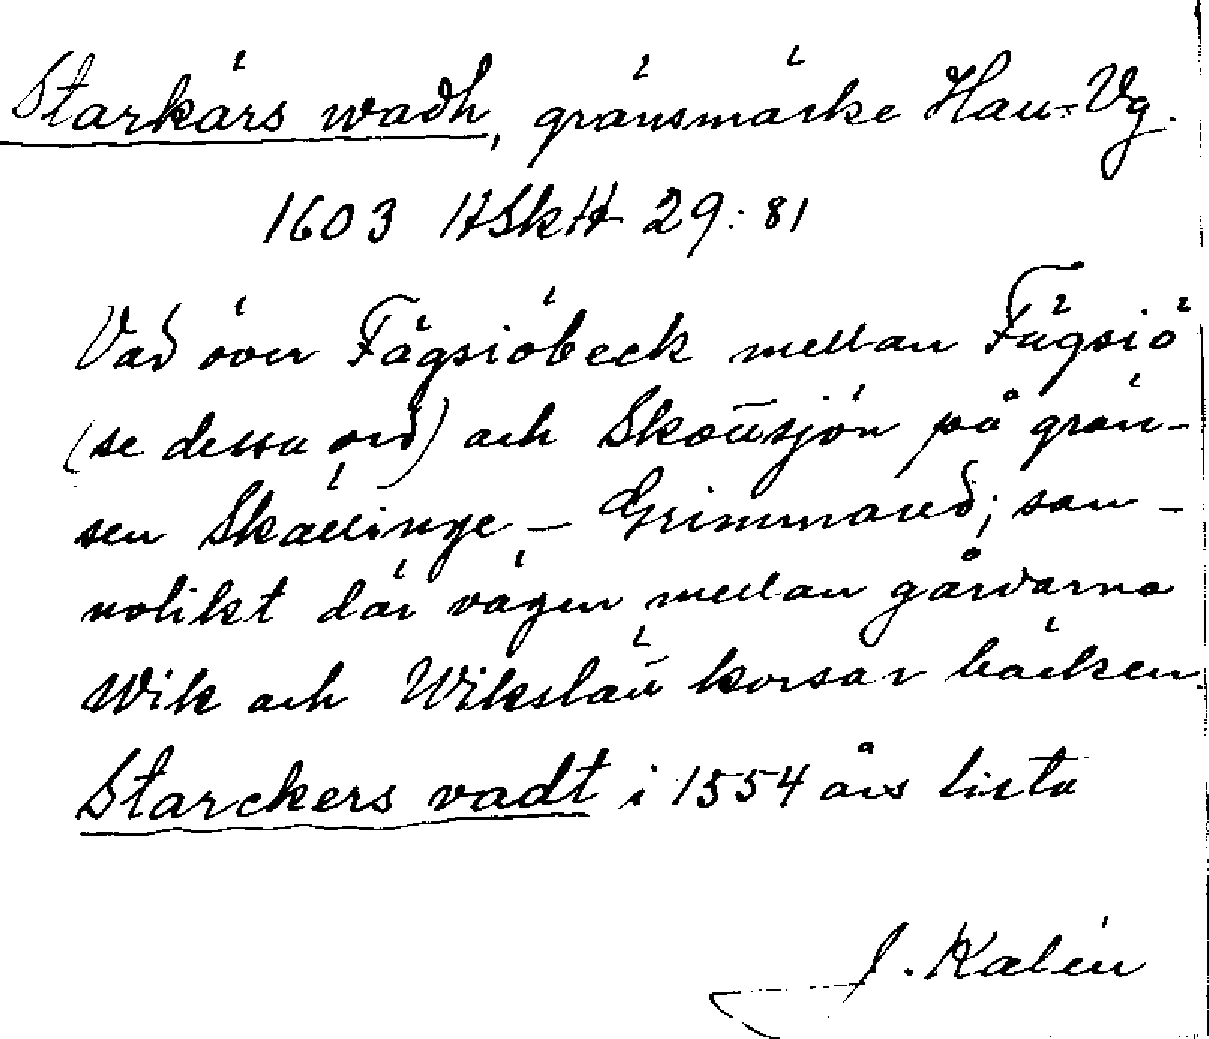 Starkärs wadh, gränsmärke Hall-Vg.
1603 HSkH 29:81
Vad över Fägsiöbeck mellan Fägsiö
(se dessa ord) och Skällsjön på grän-
sen Skällinge - Grimmared; san-
nolikt där vägen mellan gårdarna
Wik och Wikslätt korsar bäcken.
Starckers vadt i 1554 års lista
J. Kalén